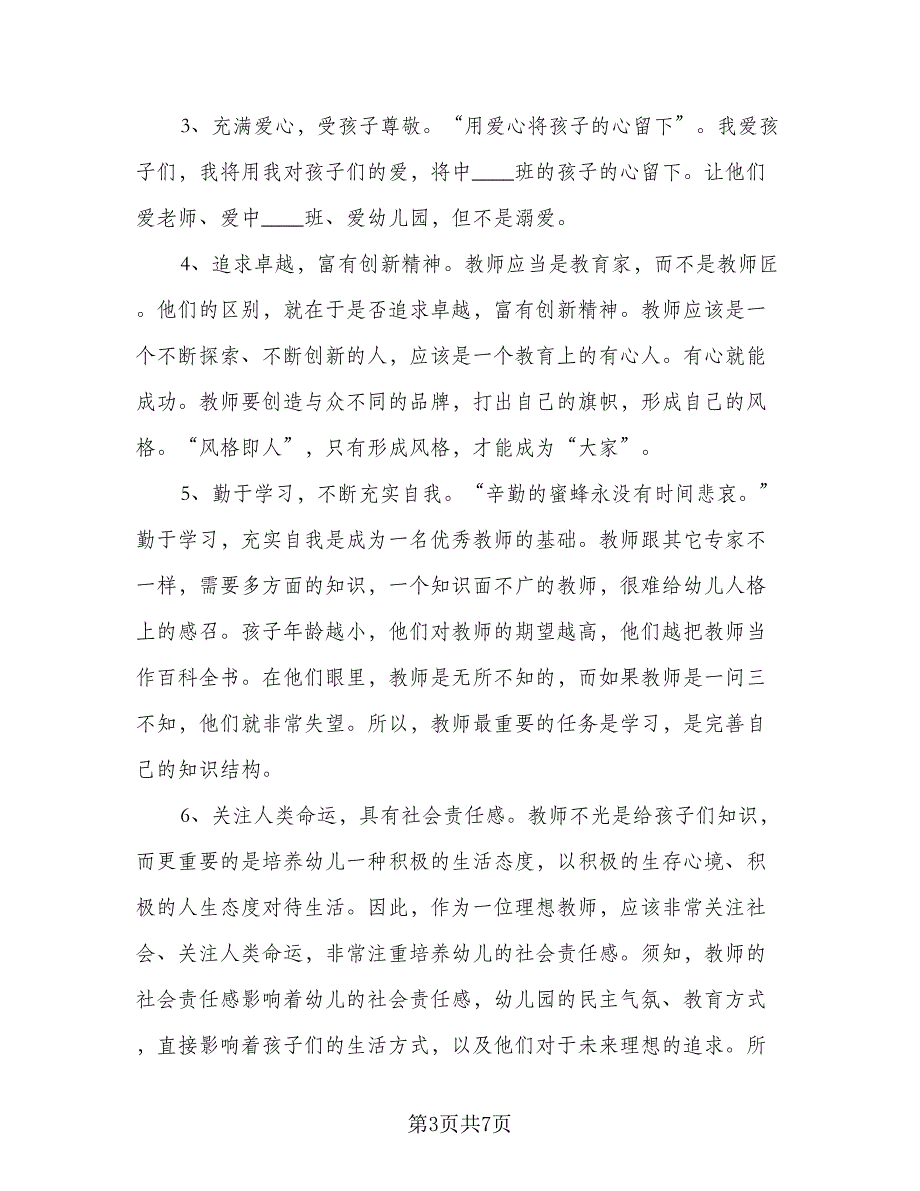 3、充满爱心，受孩子尊敬。“用爱心将孩子的心留下”。我爱孩
子们，我将用我对孩子们的爱，将中____班的孩子的心留下。让他们
爱老师、爱中____班、爱幼儿园，但不是溺爱。
4、追求卓越，富有创新精神。教师应当是教育家，而不是教师匠
。他们的区别，就在于是否追求卓越，富有创新精神。教师应该是一
个不断探索、不断创新的人，应该是一个教育上的有心人。有心就能
成功。教师要创造与众不同的品牌，打出自己的旗帜，形成自己的风
格。“风格即人”，只有形成风格，才能成为“大家”。
5、勤于学习，不断充实自我。“辛勤的蜜蜂永没有时间悲哀。”
勤于学习，充实自我是成为一名优秀教师的基础。教师跟其它专家不
一样，需要多方面的知识，一个知识面不广的教师，很难给幼儿人格
上的感召。孩子年龄越小，他们对教师的期望越高，他们越把教师当
作百科全书。在他们眼里，教师是无所不知的，而如果教师是一问三
不知，他们就非常失望。所以，教师最重要的任务是学习，是完善自
己的知识结构。
6、关注人类命运，具有社会责任感。教师不光是给孩子们知识，
而更重要的是培养幼儿一种积极的生活态度，以积极的生存心境、积
极的人生态度对待生活。因此，作为一位理想教师，应该非常关注社
会、关注人类命运，非常注重培养幼儿的社会责任感。须知，教师的
社会责任感影响着幼儿的社会责任感，幼儿园的民主气氛、教育方式
，直接影响着孩子们的生活方式，以及他们对于未来理想的追求。所
第3页共7页